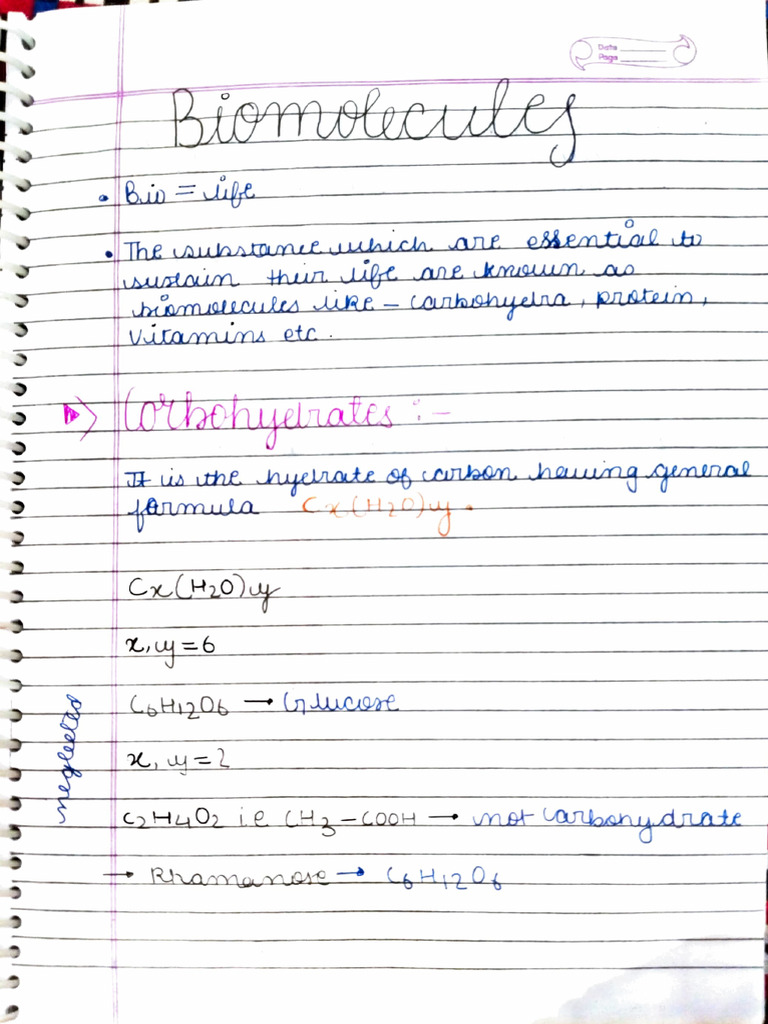 Date
Page
Biomolecules
• Bio = life
• The substance which are essential to
sustain their life are known as
biomolecules like - carbohydra, protein,
vitamins etc.
Carbohydrates :-
It is the hydrate of carbon having general
formula Cx(H2O)y.
Cx(H2O)y
x,y=6
C6H12O6 → Glucose
x, y=2
neglected
C2H4O2 i.e CH3-COOH → not carbohydrate
→ Rhamanose → C6H12O6